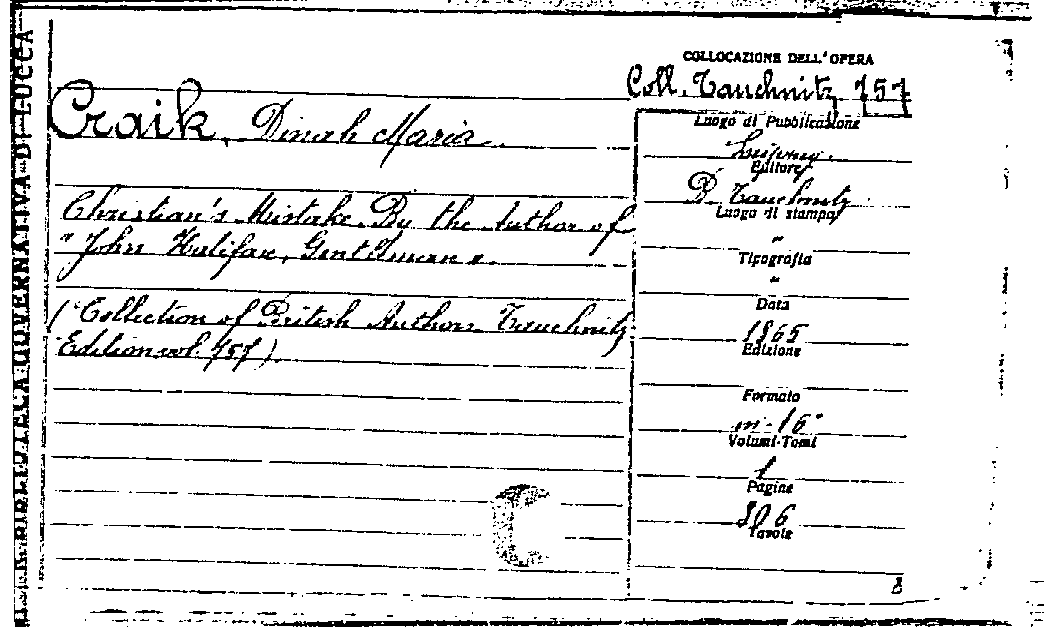 BIBLIOTECA GOVERNATIVA DI LUCCA
COLLOCAZIONE DELL'OPERA
Coll. Tauchnitz 757
Craik, Dinah Maria.
Luogo di Pubblicazione
Leipzig.
Editore
B. Tauchnitz
Luogo di stampa
"
Tipografia
"
Data
1865
Edizione
Formato
in-16°
Volumi-Tomi
1
Pagine
306
Tavole
Christian's Mistake. By the Author of
"John Halifax, Gentleman".
("Collection of British Authors Tauchnitz
Edition vol. 757)
C